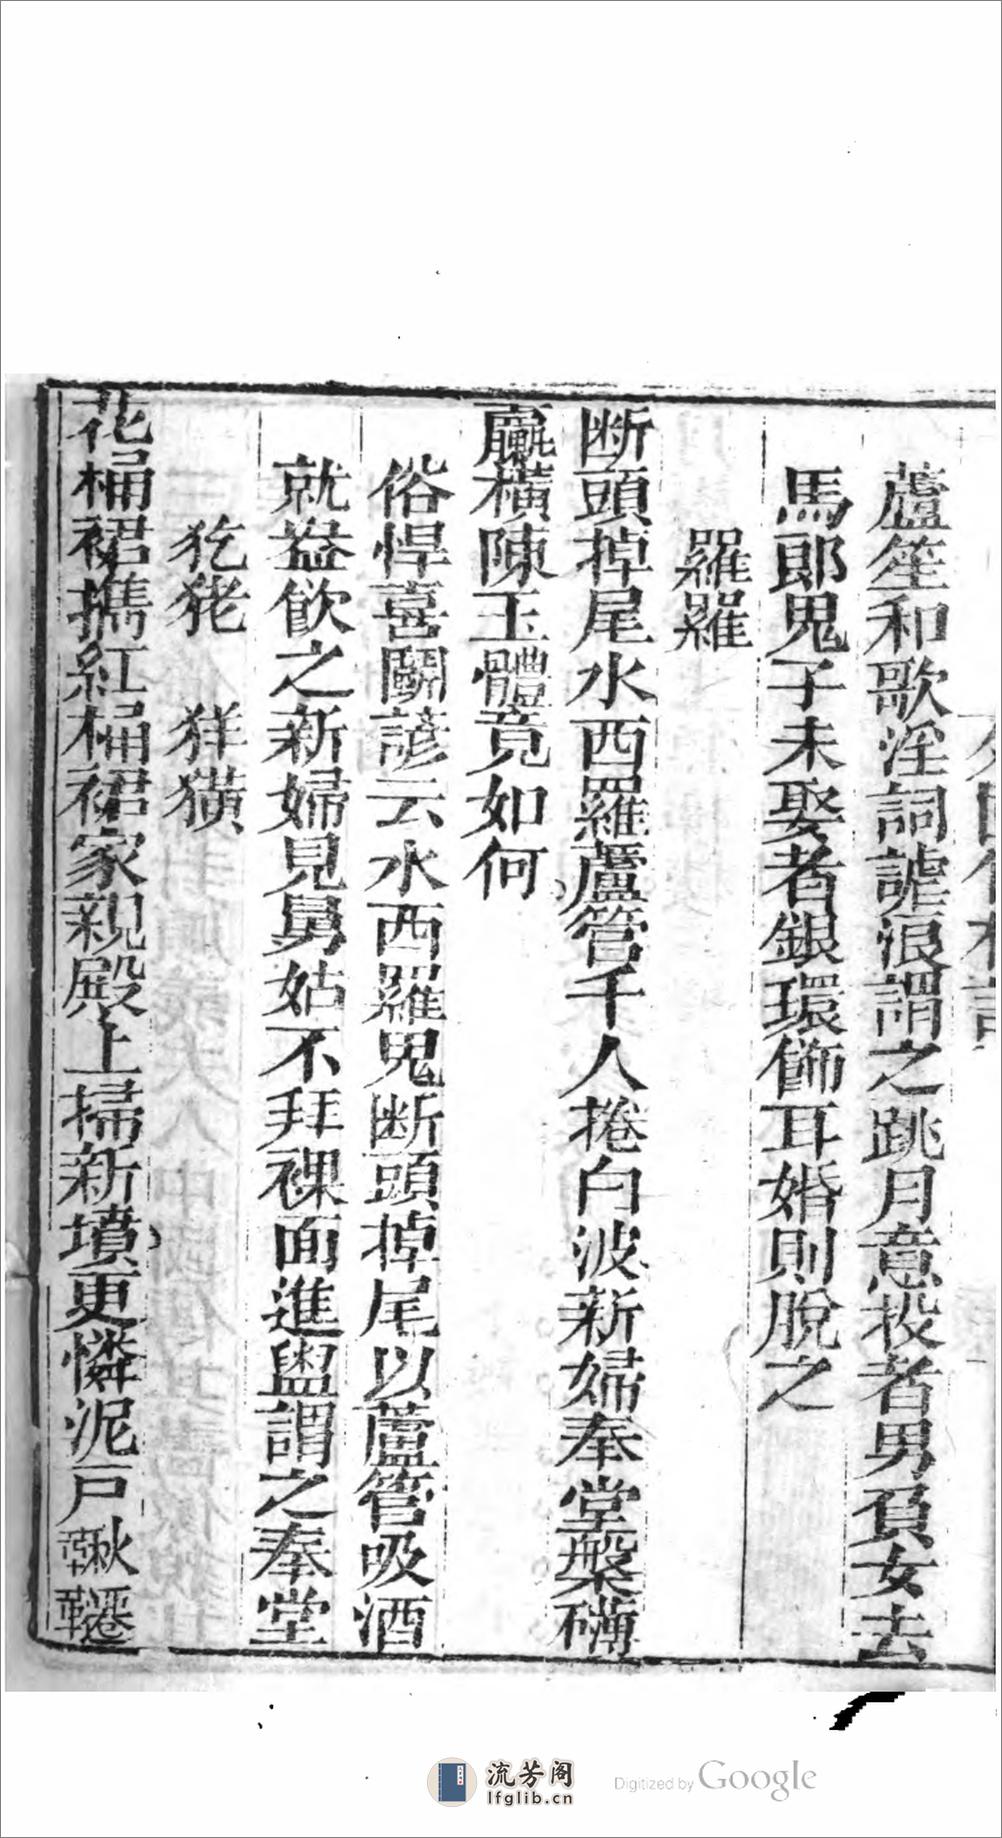 蘆笙和歌淫詞謔浪謂之跳月意投者男負女去
馬郎鬼子未娶者銀環飾耳婚則脫之
羅羅
断頭掉尾水西羅蘆管千人捲白波新婦奉堂槃礴
臝橫陳玉體竟如何
俗悍喜鬬諺云水西羅鬼断頭掉尾以蘆管吸酒
就盎飲之新婦見舅姑不拜裸而進盥謂之奉堂
犵狫 㺊獚
花桶裙携紅桶裙家親殿上掃新墳更憐泥戸鞦韆
流芳阁
lfglib.cn
Digitized by Google